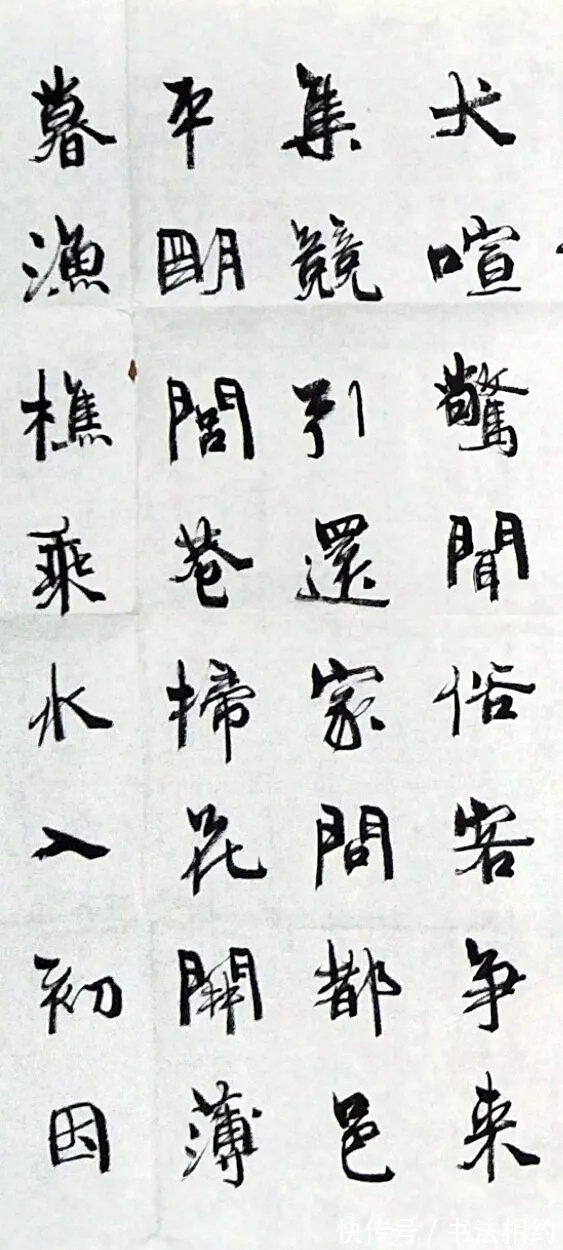 犬喧驚聞俗客争来
集競引還家問都邑
平明閭巷掃花開薄
暮漁樵乘水入初因
快传号 / 书法相约